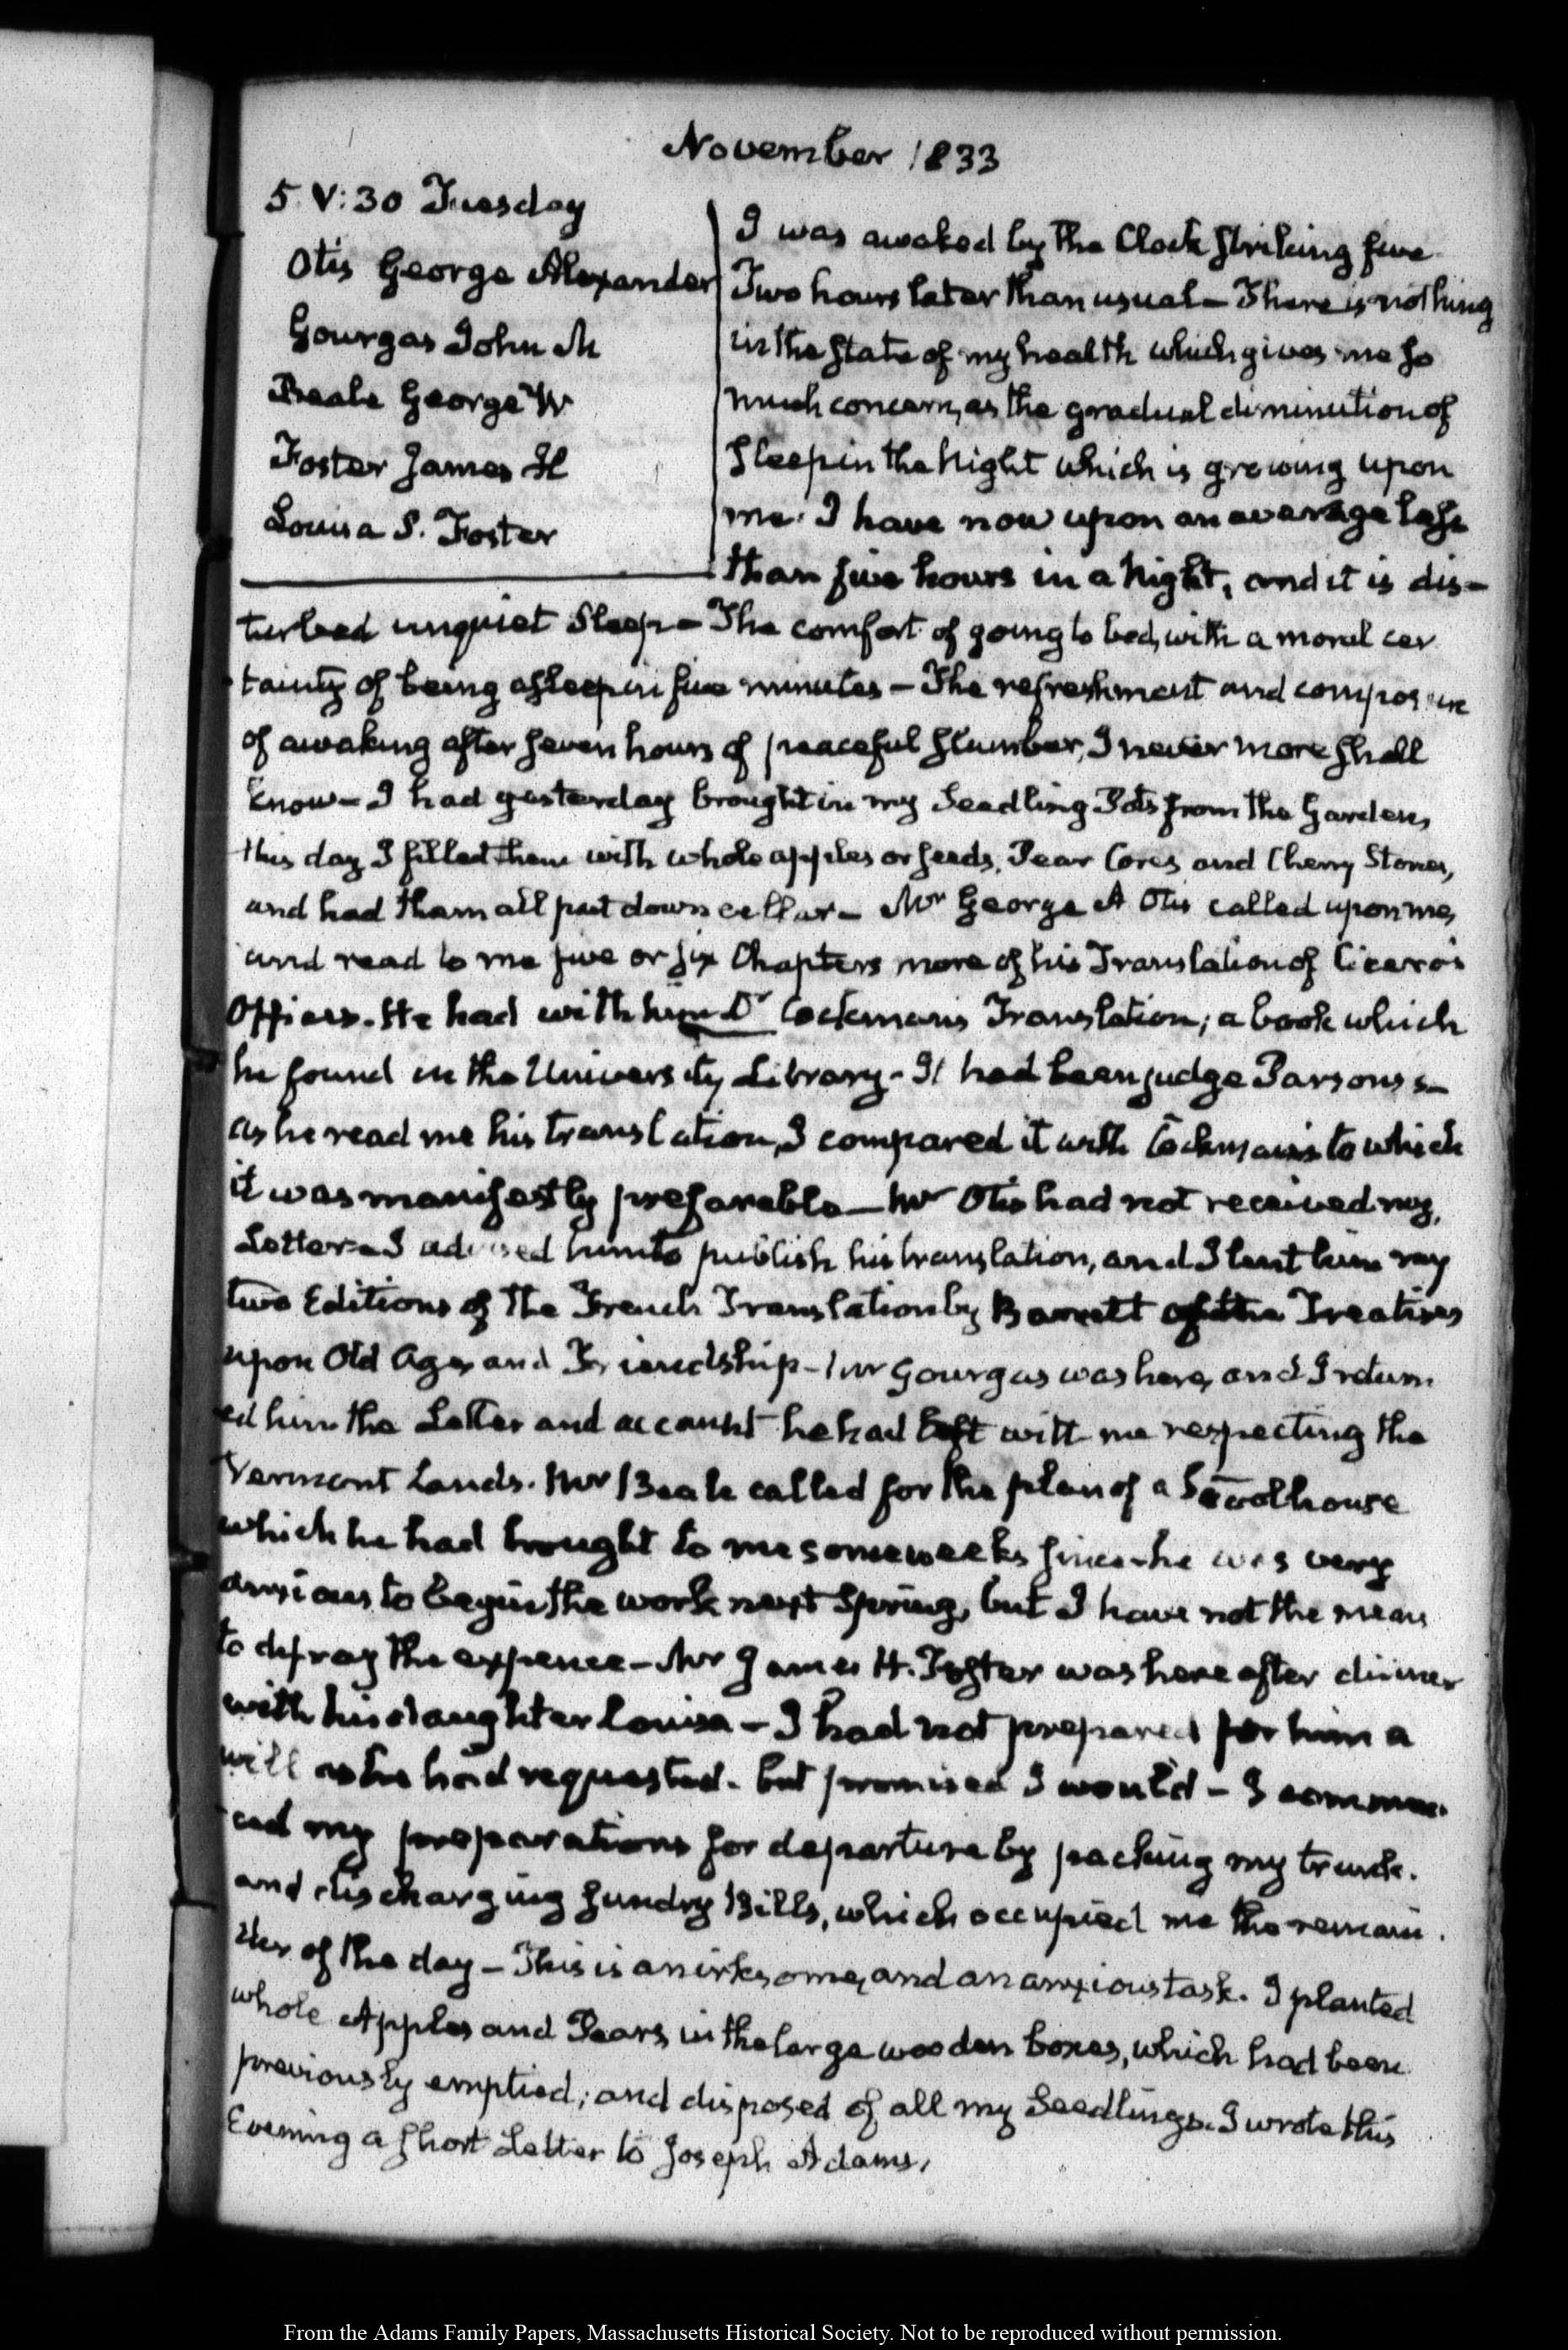 November 1833
5. V:30 Tuesday
Otis George Alexander
Gourgas John M
Beale George W
Foster James H
Louisa S. Foster
I was awaked by the Clock striking five
Two hours later than usual – There is nothing
in the State of my health which gives me so
much concern, as the gradual diminution of
Sleep in the Night which is growing upon
me. I have now upon an average less
than five hours in a Night, and it is dis-
turbed unquiet Sleep – The comfort of going to bed, with a moral cer
tainty of being asleep in five minutes – The refreshment and composure
of awaking after seven hours of peaceful slumber, I never more shall
know – I had yesterday brought in my Seedling Pots from the Garden,
this day I filled them with whole apples or seeds, Pear Cores and Cherry Stones,
and had them all put down cellar – Mr George A Otis called upon me,
and read to me five or six Chapters more of his Translation of Cicero's
Offices. He had with him Dr Cockman's Translation; a book which
he found in the University Library – It had been judge Parsons's –
as he read me his translation, I compared it with Cockman's to which
it was manifestly preferable – Mr Otis had not received my
Letter – I advised him to publish his translation, and I lent him my
two Editions of the French Translation by Barrett of the Treatises
upon Old Age, and Friendship – Mr Gourgas was here, and I return
ed him the Letter and account he had left with me respecting the
Vermont Lands. Mr Beale called for the plan of a Schoolhouse
which he had brought to me some weeks since – he was very
anxious to begin the work next Spring, but I have not the means
to defray the expence – Mr James H. Foster was here after dinner
with his daughter Louisa – I had not prepared for him a
will as he had requested. but promised I would – I commen
ced my preparations for departure by packing my trunk.
and discharging sundry Bills, which occupied me the remain
der of the day – This is an irksome, and an anxious task. I planted
whole Apples and Pears in the large wooden boxes, which had been
previously emptied; and disposed of all my Seedlings. I wrote this
Evening a short Letter to Joseph Adams,
From the Adams Family Papers, Massachusetts Historical Society. Not to be reproduced without permission.